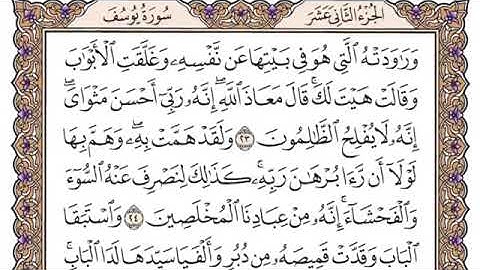 الجزء الثاني عشر
سورة يوسف
وَرَٰوَدَتْهُ ٱلَّتِي هُوَ فِي بَيْتِهَا عَن نَّفْسِهِۦ وَغَلَّقَتِ ٱلْأَبْوَٰبَ
وَقَالَتْ هَيْتَ لَكَ ۚ قَالَ مَعَاذَ ٱللَّهِ ۖ إِنَّهُۥ رَبِّيٓ أَحْسَنَ مَثْوَايَ ۖ
إِنَّهُۥ لَا يُفْلِحُ ٱلظَّٰلِمُونَ ٢٣ وَلَقَدْ هَمَّتْ بِهِۦ ۖ وَهَمَّ بِهَا
لَوْلَآ أَن رَّءَا بُرْهَٰنَ رَبِّهِۦ ۚ كَذَٰلِكَ لِنَصْرِفَ عَنْهُ ٱلسُّوٓءَ
وَٱلْفَحْشَآءَ ۚ إِنَّهُۥ مِنْ عِبَادِنَا ٱلْمُخْلَصِينَ ٢٤ وَٱسْتَبَقَا
ٱلْبَابَ وَقَدَّتْ قَمِيصَهُۥ مِن دُبُرٍ وَأَلْفَيَا سَيِّدَهَا لَدَا ٱلْبَابِ ۚ